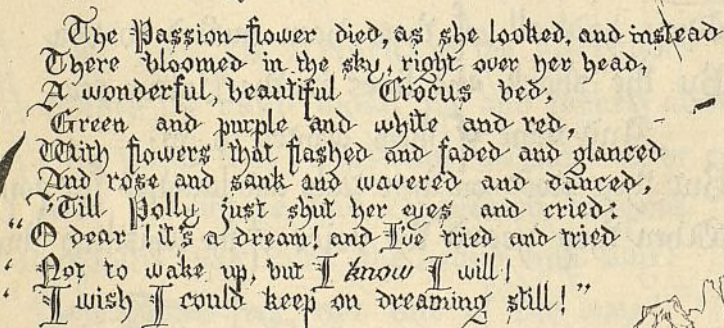 The Passion-flower died, as she looked, and instead
There bloomed in the sky, right over her head,
A wonderful, beautiful Crocus bed,
Green and purple and white and red,
With flowers that flashed and faded and glanced
And rose and sank and wavered and danced,
'Till Polly just shut her eyes and cried:
"O dear! it's a dream! and I've tried and tried
' Not to wake up, but I know I will!
' I wish I could keep on dreaming still!"